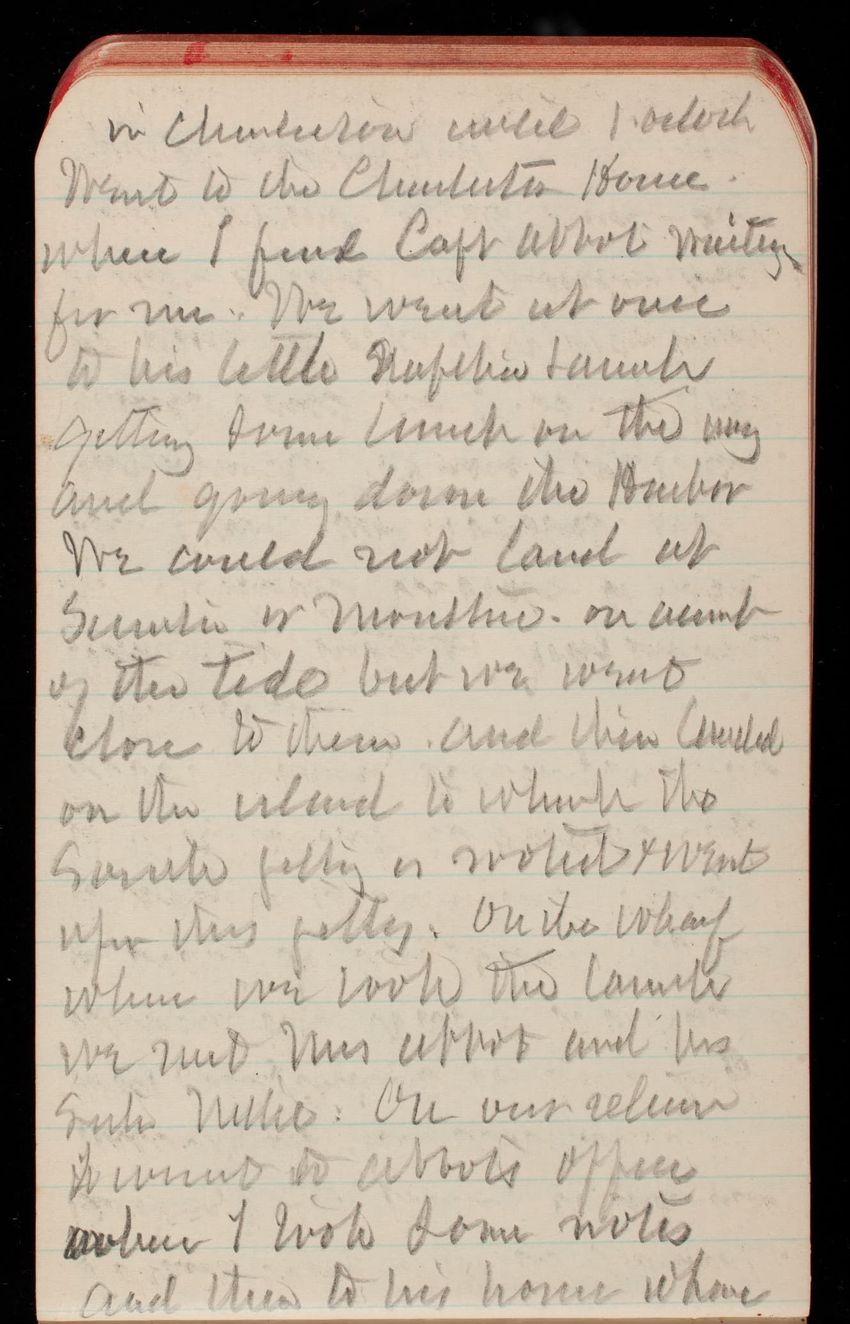 in Charleston until 1 oclock
Went to the Charleston House.
where I find Capt Abbot waiting
for me. We went at once
to his little Naptha Launch
getting some lunch on the way
and going down the Harbor
We could not land at
Sumter or Moultrie. on acount
of the tide but we went
close to them. and then landed
on the island to which the
South jetty is rooted & went
upon this jetty. On the wharf
where we took the launch
we met Mrs Abbot and his
Sister Nellie. On our return
I went to Abbots office
where I took some notes
and then to his home where